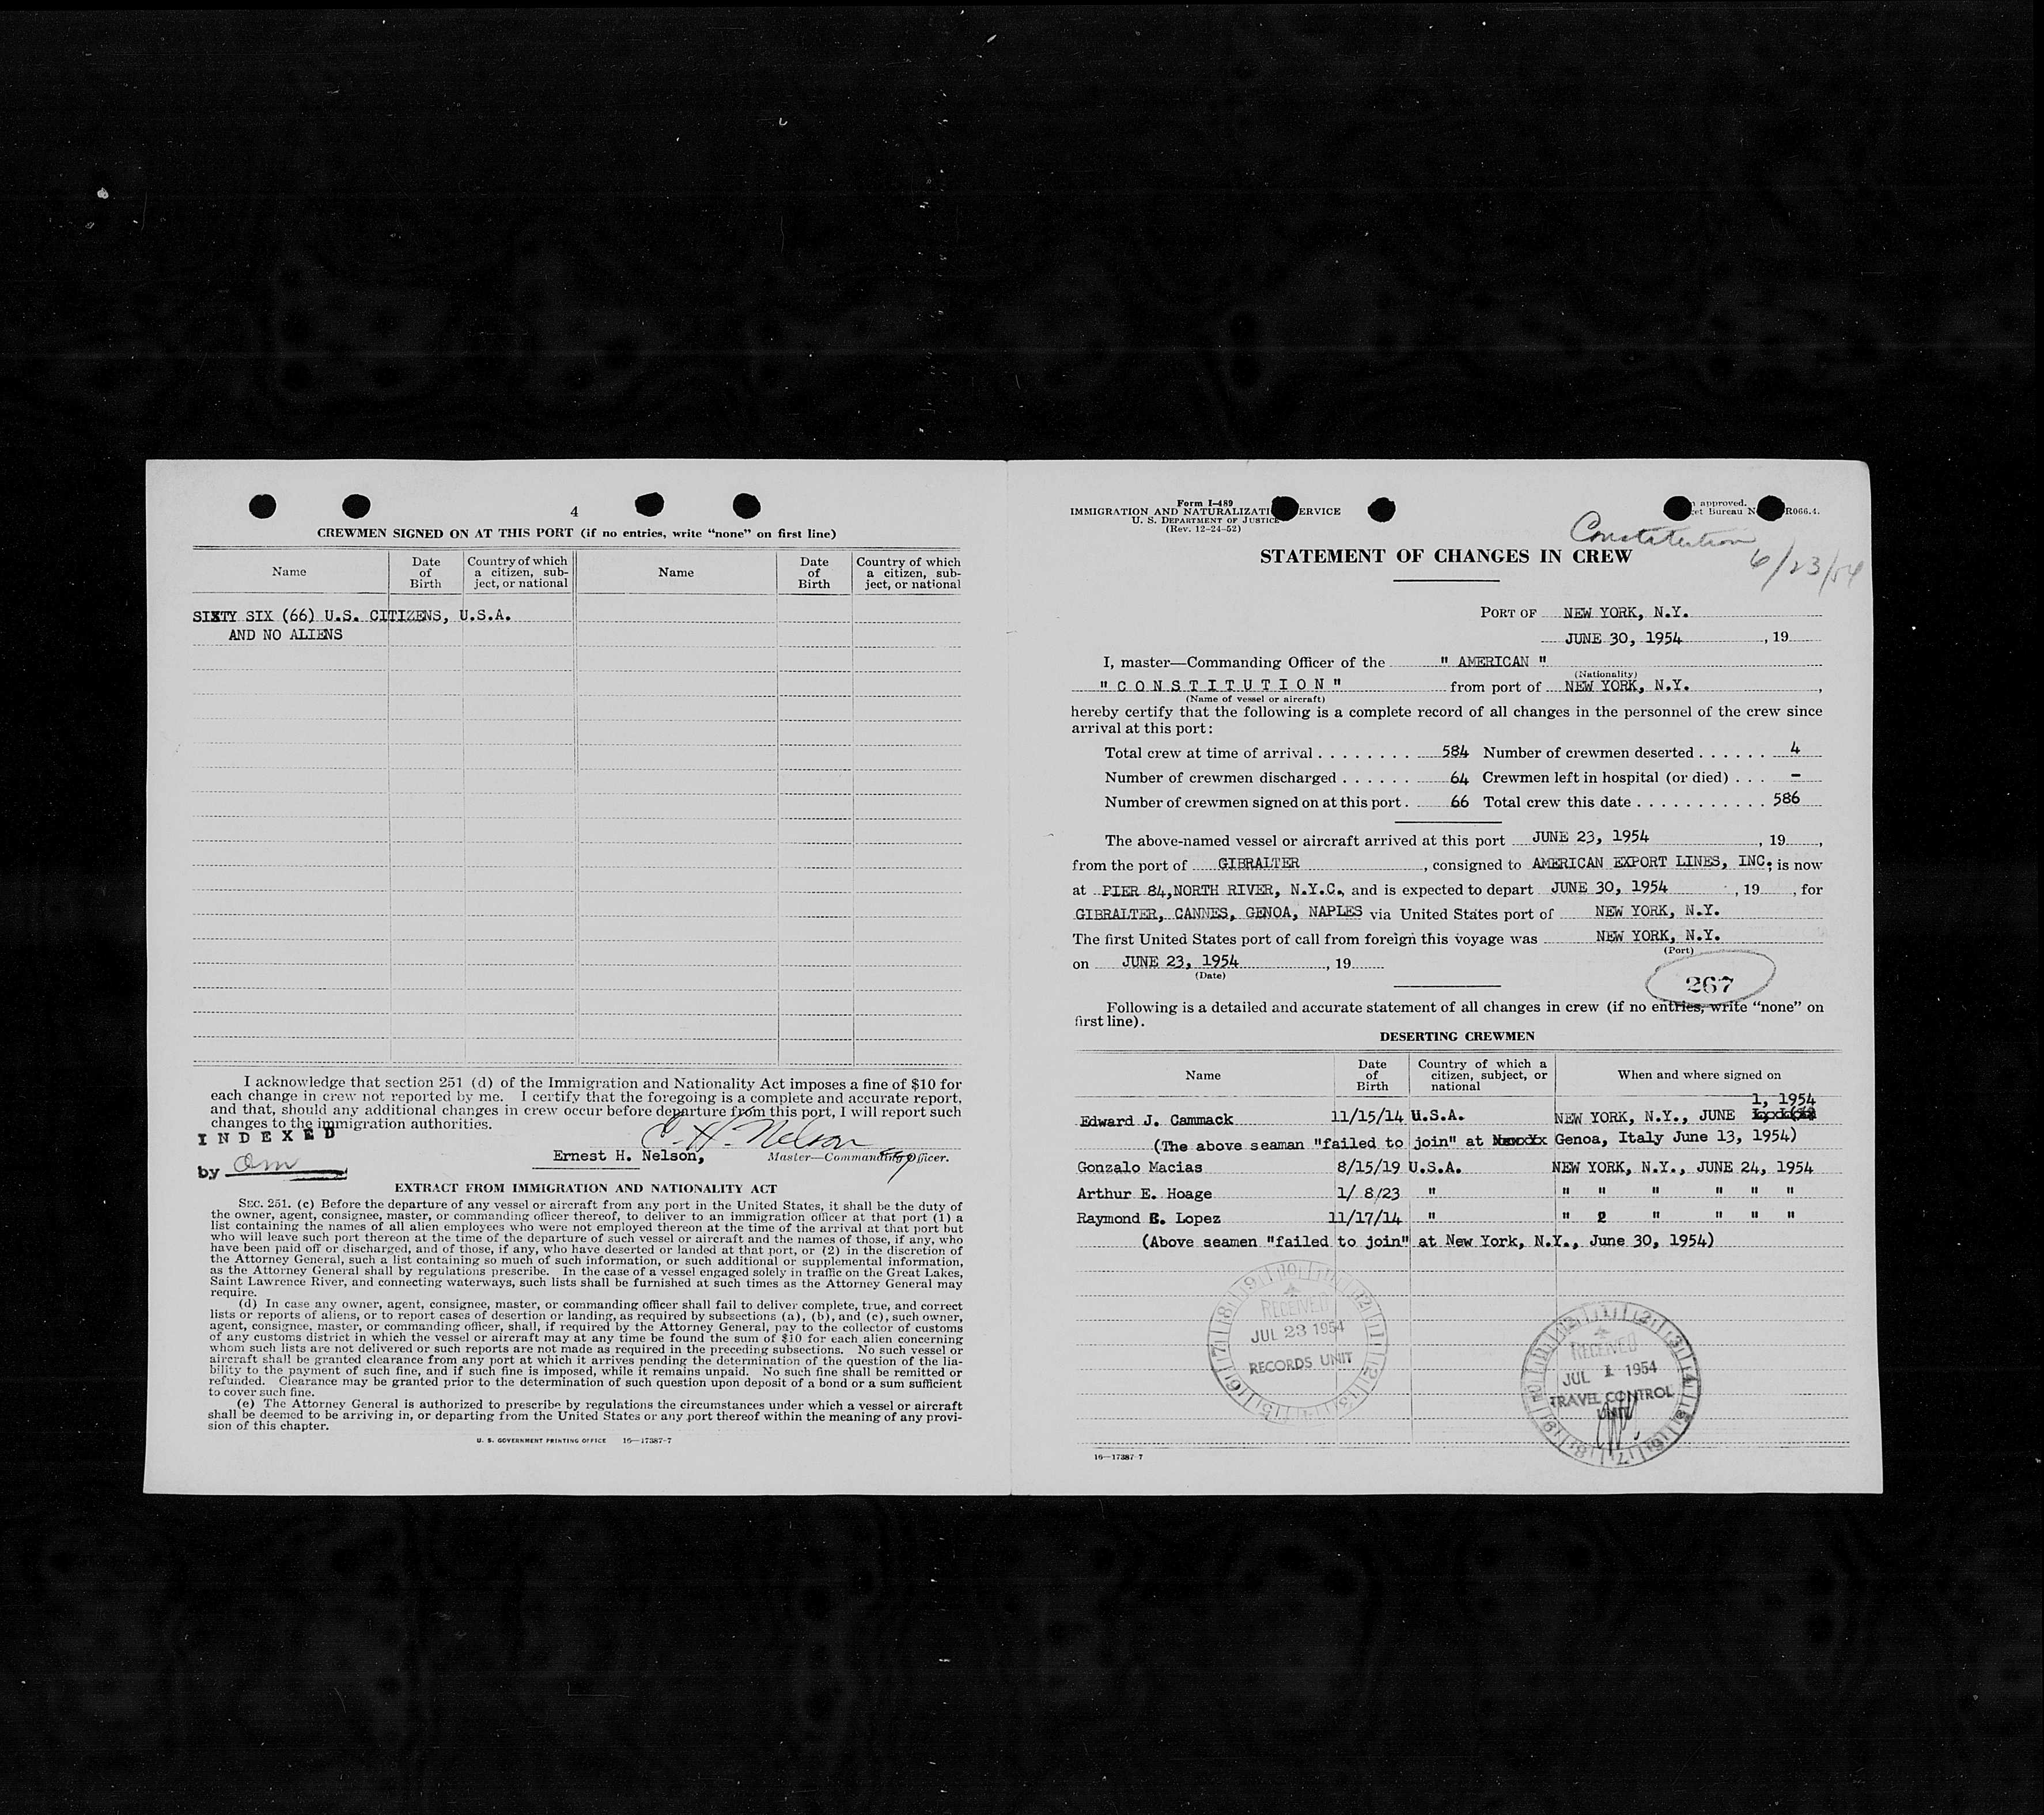 4
CREWMEN SIGNED ON AT THIS PORT (if no entries, write "none" on first line)
Name
Date of Birth
Country of which a citizen, subject, or national
Name
Date of Birth
Country of which a citizen, subject, or national
SIXTY SIX (66) U.S. CITIZENS, U.S.A.
AND NO ALIENS
I acknowledge that section 251 (d) of the Immigration and Nationality Act imposes a fine of $10 for
each change in crew not reported by me. I certify that the foregoing is a complete and accurate report,
and that, should any additional changes in crew occur before departure from this port, I will report such
changes to the immigration authorities.
INDEXED
by
E. H. Nelson
Ernest H. Nelson, Master—Commanding Officer.
EXTRACT FROM IMMIGRATION AND NATIONALITY ACT
SEC. 251. (c) Before the departure of any vessel or aircraft from any port in the United States, it shall be the duty of
the owner, agent, consignee, master, or commanding officer thereof, to deliver to an immigration officer at that port (1) a
list containing the names of all alien employees who were not employed thereon at the time of the arrival at that port but
who will leave such port thereon at the time of the departure of such vessel or aircraft and the names of those, if any, who
have been paid off or discharged, and of those, if any, who have deserted or landed at that port, or (2) in the discretion of
the Attorney General, such a list containing so much of such information, or such additional or supplemental information,
as the Attorney General shall by regulations prescribe. In the case of a vessel engaged solely in traffic on the Great Lakes,
Saint Lawrence River, and connecting waterways, such lists shall be furnished at such times as the Attorney General may
require.
(d) In case any owner, agent, consignee, master, or commanding officer shall fail to deliver complete, true, and correct
lists or reports of aliens, or to report cases of desertion or landing, as required by subsections (a), (b), and (c), such owner,
agent, consignee, master, or commanding officer, shall, if required by the Attorney General, pay to the collector of customs
of any customs district in which the vessel or aircraft may at any time be found the sum of $10 for each alien concerning
whom such lists are not delivered or such reports are not made as required in the preceding subsections. No such vessel or
aircraft shall be granted clearance from any port at which it arrives pending the determination of the question of the lia-
bility to the payment of such fine, and if such fine is imposed, while it remains unpaid. No such fine shall be remitted or
refunded. Clearance may be granted prior to the determination of such question upon deposit of a bond or a sum sufficient
to cover such fine.
(e) The Attorney General is authorized to prescribe by regulations the circumstances under which a vessel or aircraft
shall be deemed to be arriving in, or departing from the United States or any port thereof within the meaning of any provi-
sion of this chapter.
U. S. GOVERNMENT PRINTING OFFICE 16—17387-7
Form I-489
IMMIGRATION AND NATURALIZATI ERVICE
U. S. DEPARTMENT OF JUSTICE
(Rev. 12-24-52)
approved.
et Bureau N R066.4.
Constitution
6/23/54
STATEMENT OF CHANGES IN CREW
PORT OF NEW YORK, N.Y.
JUNE 30, 1954, 19
I, master—Commanding Officer of the " AMERICAN "
(Nationality)
" C O N S T I T U T I O N " from port of NEW YORK, N.Y.,
(Name of vessel or aircraft)
hereby certify that the following is a complete record of all changes in the personnel of the crew since
arrival at this port:
Total crew at time of arrival 584 Number of crewmen deserted 4
Number of crewmen discharged 64 Crewmen left in hospital (or died) -
Number of crewmen signed on at this port 66 Total crew this date 586
The above-named vessel or aircraft arrived at this port JUNE 23, 1954, 19 ,
from the port of GIBRALTER, consigned to AMERICAN EXPORT LINES, INC; is now
at PIER 84,NORTH RIVER, N.Y.C., and is expected to depart JUNE 30, 1954, 19 , for
GIBRALTER, CANNES, GENOA, NAPLES via United States port of NEW YORK, N.Y.
The first United States port of call from foreign this voyage was NEW YORK, N.Y.
(Port)
on JUNE 23, 1954, 19
(Date)
267
Following is a detailed and accurate statement of all changes in crew (if no entries, write "none" on
first line).
DESERTING CREWMEN
Name
Date of Birth
Country of which a citizen, subject, or national
When and where signed on
1, 1954
Edward J. Cammack 11/15/14 U.S.A. NEW YORK, N.Y., JUNE
(The above seaman "failed to join" at Genoa, Italy June 13, 1954)
Gonzalo Macias 8/15/19 U.S.A. NEW YORK, N.Y., JUNE 24, 1954
Arthur E. Hoage 1/ 8/23 " " " " " " "
Raymond E. Lopez 11/17/14 " " 2 " " " "
(Above seamen "failed to join" at New York, N.Y., June 30, 1954)
RECEIVED
JUL 23 1954
RECORDS UNIT
RECEIVED
JUL 1 1954
TRAVEL CONTROL
UNIT
16—17387-7